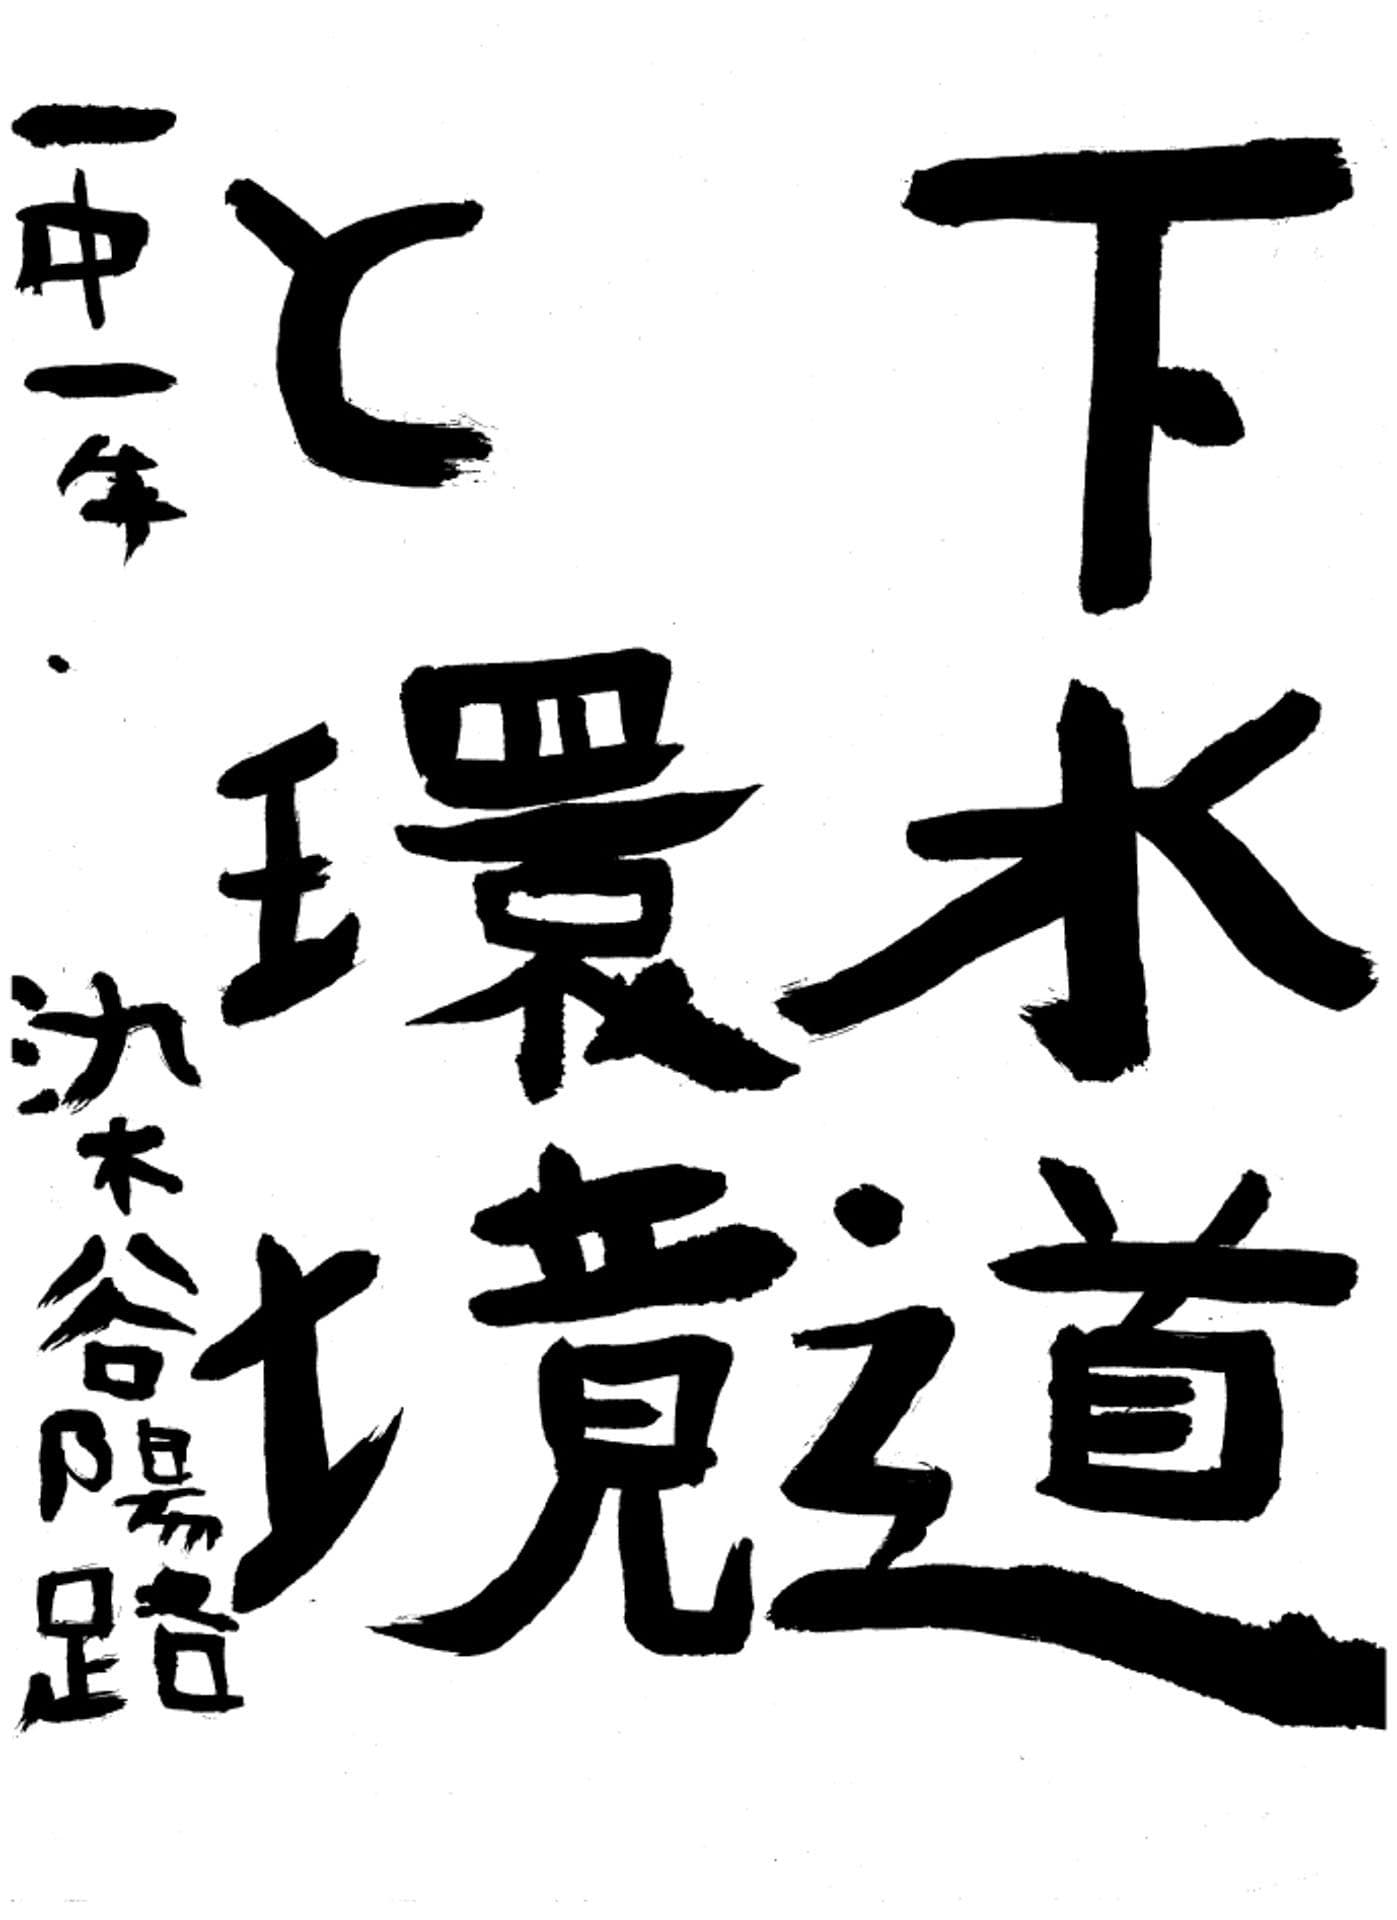 下水道
と環境
一中一年 染谷陽路